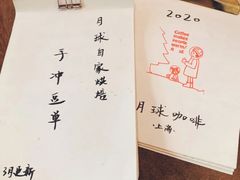 月球自家烘焙
手冲豆单
3月更新
2020
Coffee
makes
people
月球咖啡
·上海·